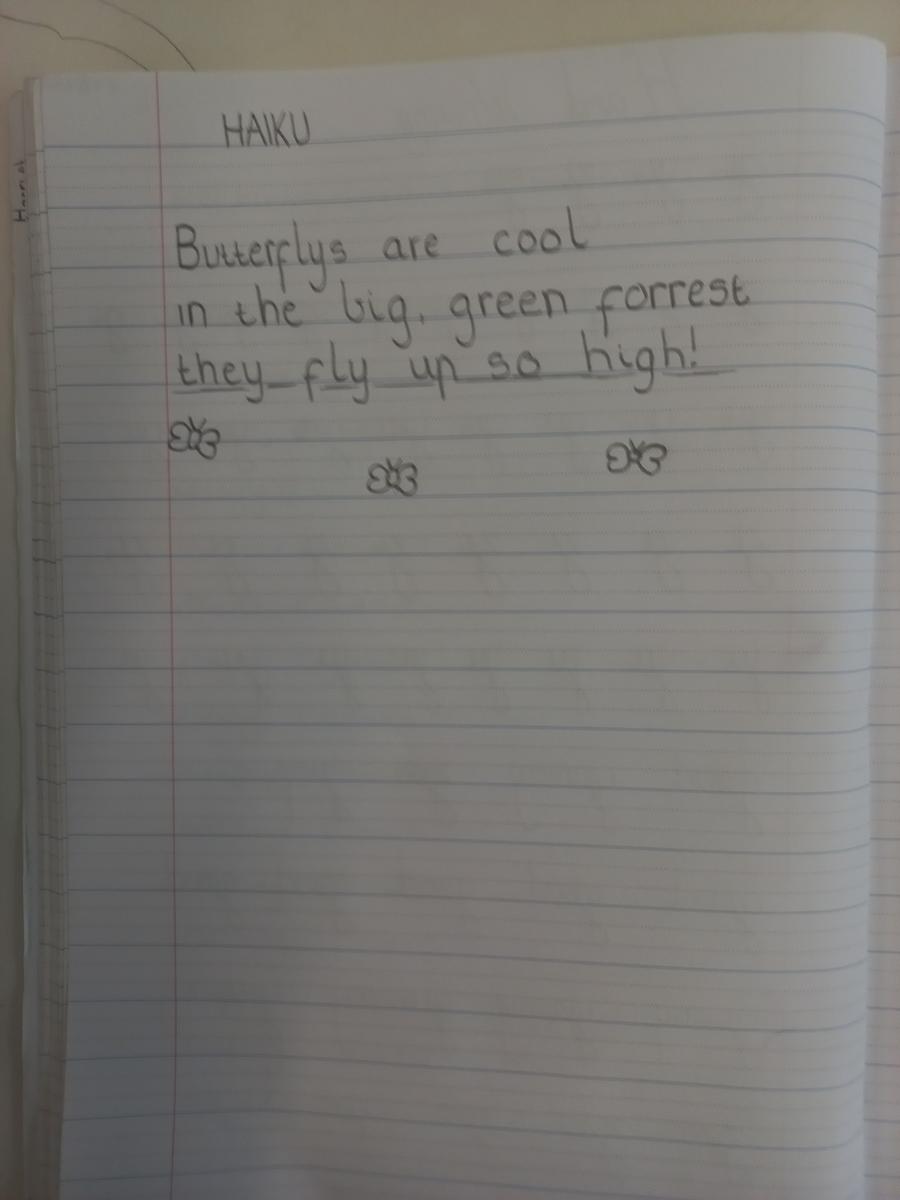 HAIKU
Butterflys are cool
in the big, green forrest
they fly up so high!